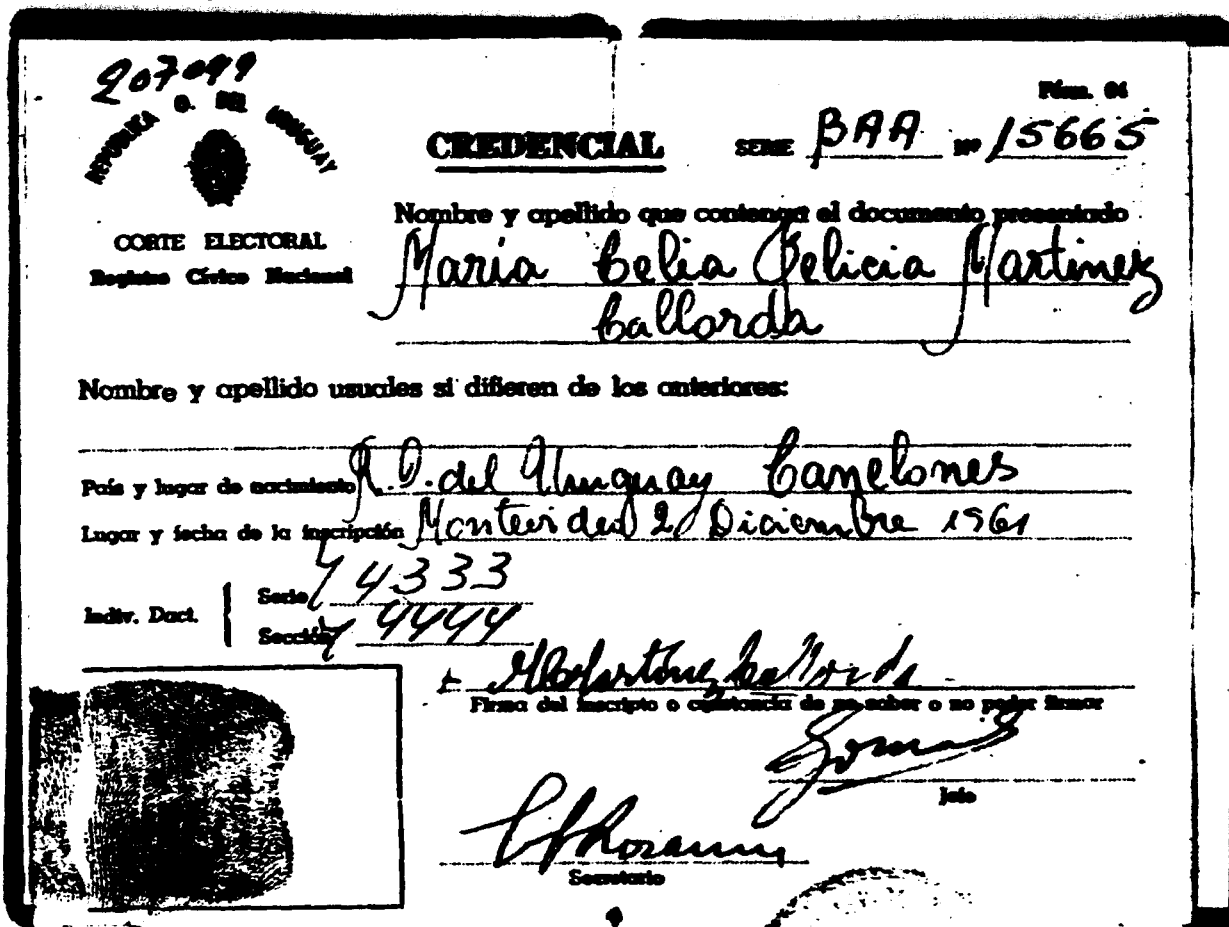 207099
REPUBLICA O. DEL URUGUAY
Fórm. 04
CREDENCIAL SERIE BAA Nº 15665
Nombre y apellido que contenga el documento presentado
CORTE ELECTORAL
Registro Cívico Nacional
María Celia Felicia Martinez
Callorda
Nombre y apellido usuales si difieren de los anteriores:
País y lugar de nacimiento R.O. del Uruguay Canelones
Lugar y fecha de la inscripción Montevideo 2 Diciembre 1961
Indiv. Dact. Serie 4333
Sección 4444
Martínez Callorda
Firma del inscripto o constancia de no saber o no poder firmar
Jefe
Secretario